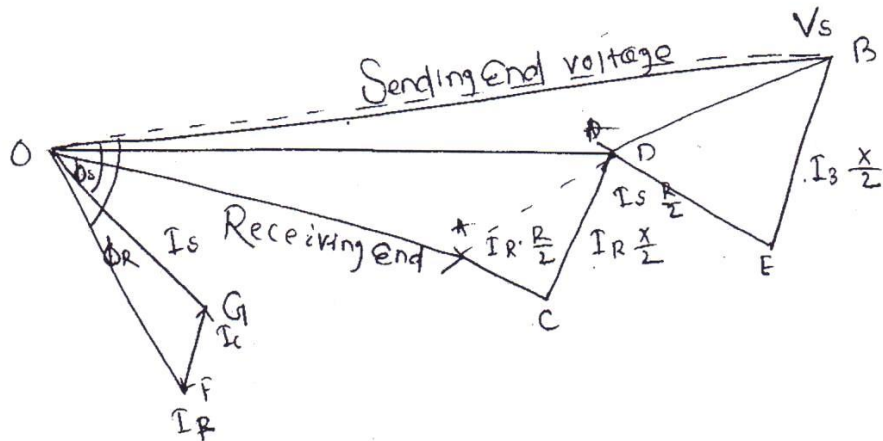 Vs
B
Sending End voltage
O
D
A
Is R/2
I3 X/2
ɸs
ɸR
Is
Receiving End
IR · R/2
IR X/2
E
C
G
Ic
F
IR